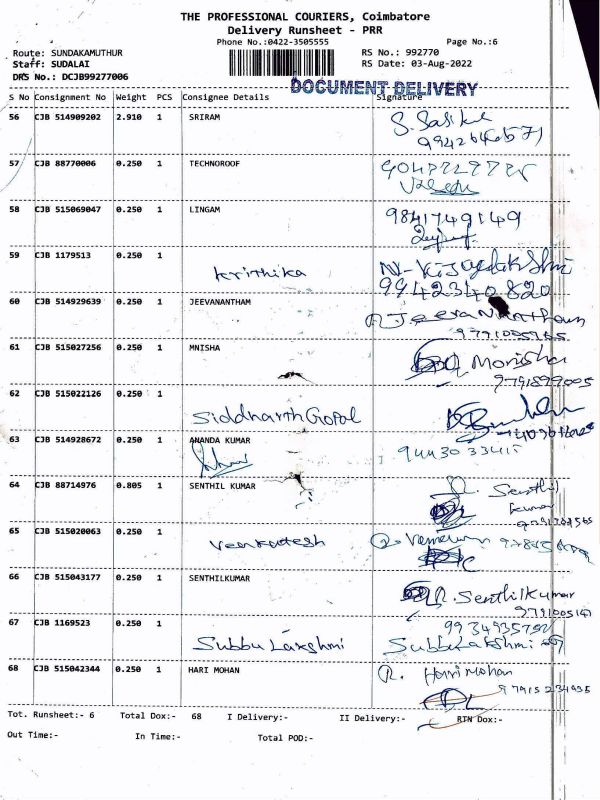 THE PROFESSIONAL COURIERS, Coimbatore
Delivery Runsheet - PRR
Phone No.:0422-3505555 Page No.:6
Route: SUNDAKAMUTHUR RS No.: 992770
Staff: SUDALAI RS Date: 03-Aug-2022
DRS No.: DCJB99277006
DOCUMENT DELIVERY
S No Consignment No Weight PCS Consignee Details Signature
56 CJB 514909202 2.910 1 SRIRAM
57 CJB 88770006 0.250 1 TECHNOROOF
58 CJB 515069047 0.250 1 LINGAM 9841749149
59 CJB 1179513 0.250 1
Krithika
9942340820
60 CJB 514929639 0.250 1 JEEVANANTHAM
61 CJB 515027256 0.250 1 MNISHA
Monisha
9791899005
62 CJB 515022126 0.250 1
Siddharth Gopal
63 CJB 514928672 0.250 1 ANANDA KUMAR
64 CJB 88714976 0.805 1 SENTHIL KUMAR
Senthil
Kumar
65 CJB 515020063 0.250 1
Venkatesh
66 CJB 515043177 0.250 1 SENTHILKUMAR
R. Senthilkumar
67 CJB 1169523 0.250 1
Subbu Lakshmi Subbulakshmi
68 CJB 515042344 0.250 1 HARI MOHAN
R. Hari Mohan
Tot. Runsheet:- 6 Total Dox:- 68 I Delivery:- II Delivery:- RTN Dox:-
Out Time:- In Time:- Total POD:-